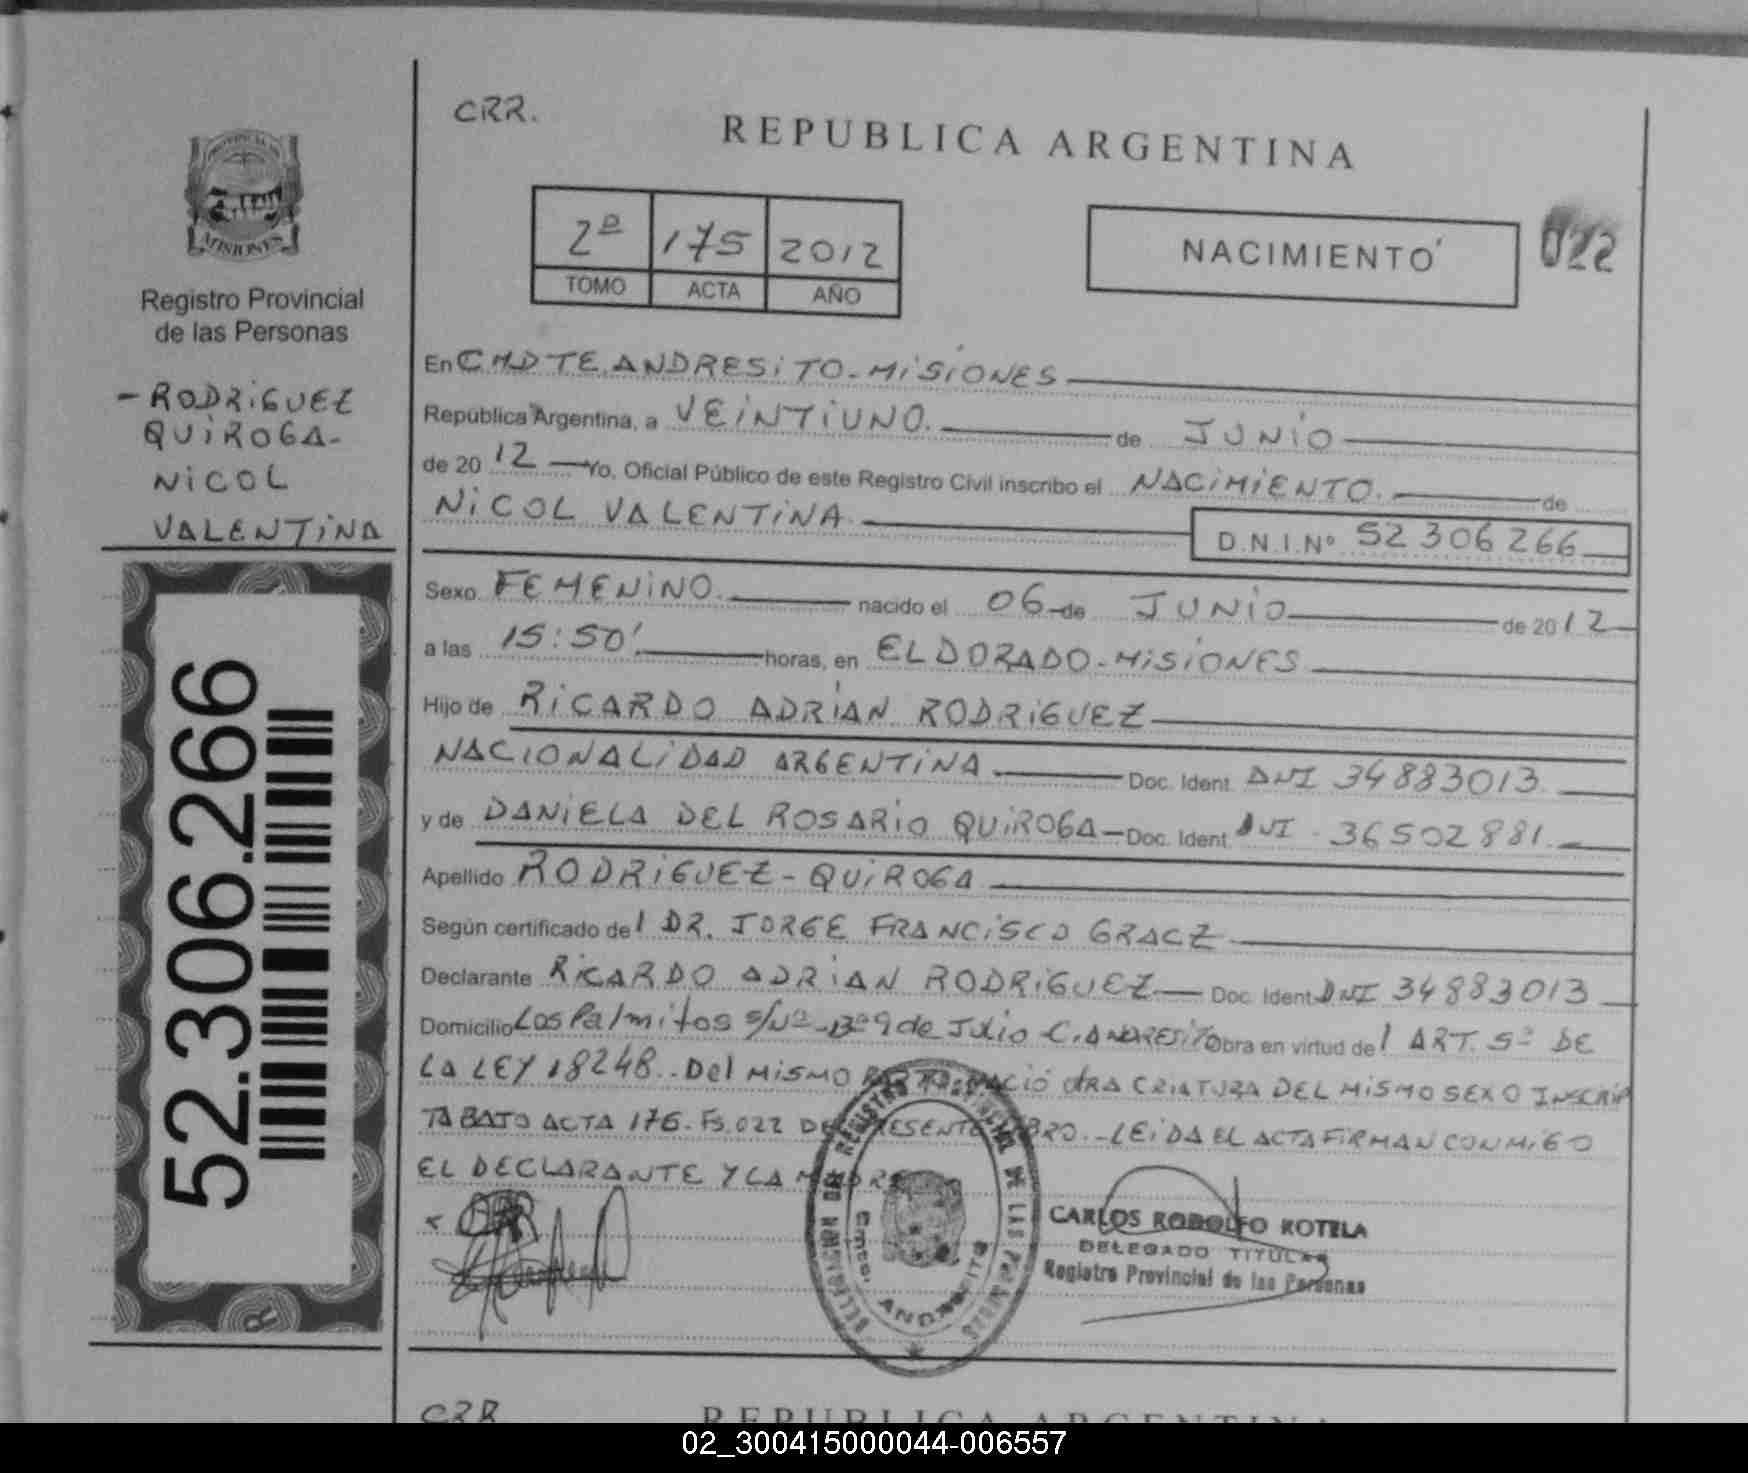 CRR.
REPUBLICA ARGENTINA
2º 175 2012
TOMO ACTA AÑO
NACIMIENTO
022
MISIONES
Registro Provincial
de las Personas
- RODRiGUEZ
QUiROGA-
NiCOL
VALENTiNA
52.306.266
R
En CMDTE. ANDRESiTO - MiSiONES
República Argentina, a VEiNTiUNO. de JUNiO
de 20 12 Yo, Oficial Público de este Registro Civil inscribo el NACiMiENTO. de
NiCOL VALENTiNA. D.N.I.Nº 52 306 266
Sexo FEMENiNO. nacido el 06 de JUNiO de 20 12
a las 15:50' horas, en ELDORADO - MiSiONES
Hijo de RiCARDO ADRiAN RODRiGUEZ
NACiONALiDAD ARGENTiNA Doc. Ident. DNI 34883013.
y de DANiELA DEL ROSARiO QUiROGA Doc. Ident. DNI 36502881.
Apellido RODRiGUEZ - QUiROGA
Según certificado del DR. JORGE FRANCiSCO GRACZ
Declarante RiCARDO ADRiAN RODRiGUEZ Doc. Ident. DNI 34883013
Domicilio Los Palmitos s/Nº - Bº 9 de Julio - C. ANDRESiTO Obra en virtud del ART. 5º DE
LA LEY 18248. - Del MiSMO PARTO NACiÓ OTRA CRiATURA DEL MiSMO SEXO INSCRiP
TA BAJO ACTA 176 - Fs. 022 DEL PRESENTE LiBRO. - LEiDA EL ACTA FiRMAN CONMiGO
EL DECLARANTE Y LA MADRE
REGISTRO PROVINCIAL DE LAS PERSONAS
Cmte.
ANDRESITO
CARLOS RODOLFO ROTELA
DELEGADO TITULAR
Registro Provincial de las Personas
CRR
REPUBLICA ARGENTINA
02_300415000044-006557